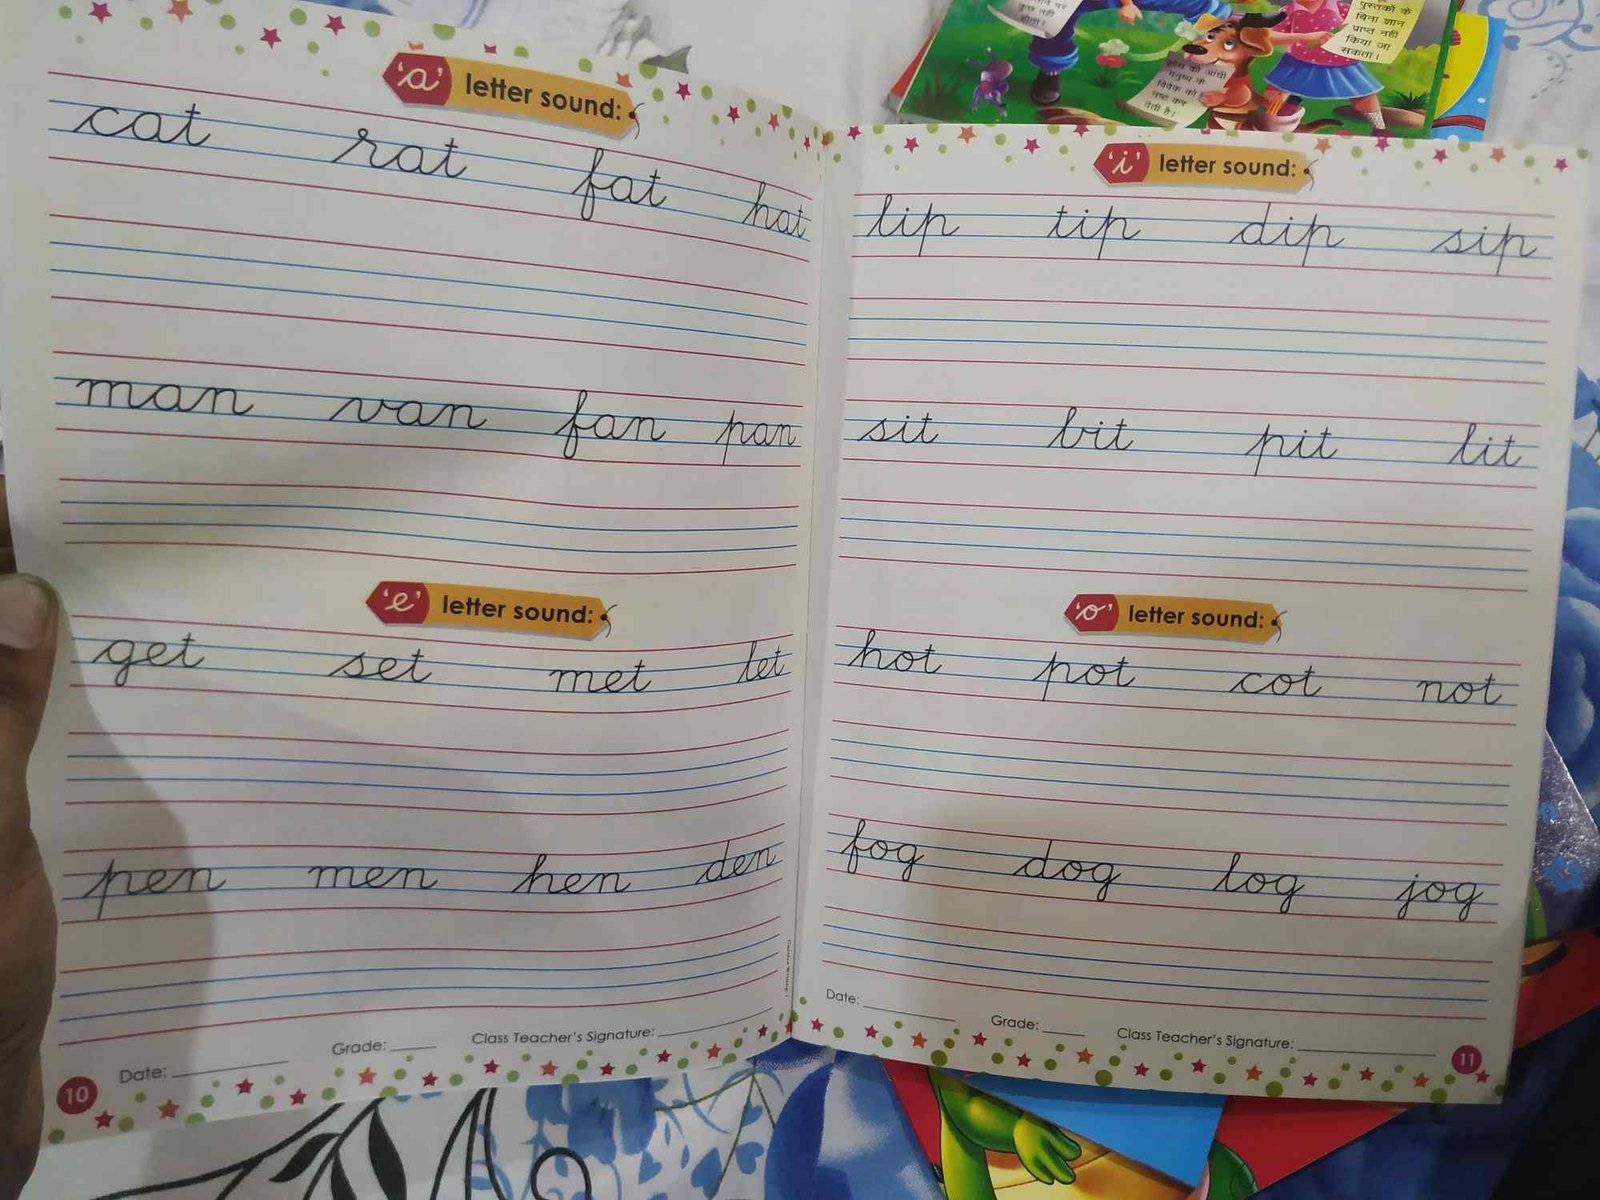 पर
कुछ नहीं
होता।
पुस्तकों के
बिना ज्ञान
प्राप्त नहीं
किया जा
सकता।
क्रोध की आंधी
मनुष्य के
विवेक को
नष्ट कर
देती है।
'a' letter sound:
cat rat fat hat
man van fan pan
'e' letter sound:
get set met let
pen men hen den
Date: Grade: Class Teacher's Signature:
10
'i' letter sound:
lip tip dip sip
sit bit pit lit
'o' letter sound:
hot pot cot not
fog dog log jog
Date: Grade: Class Teacher's Signature:
11